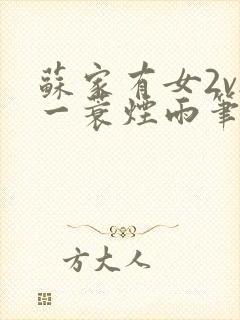 蘇家有女2v
一蓑煙雨筆
方大人